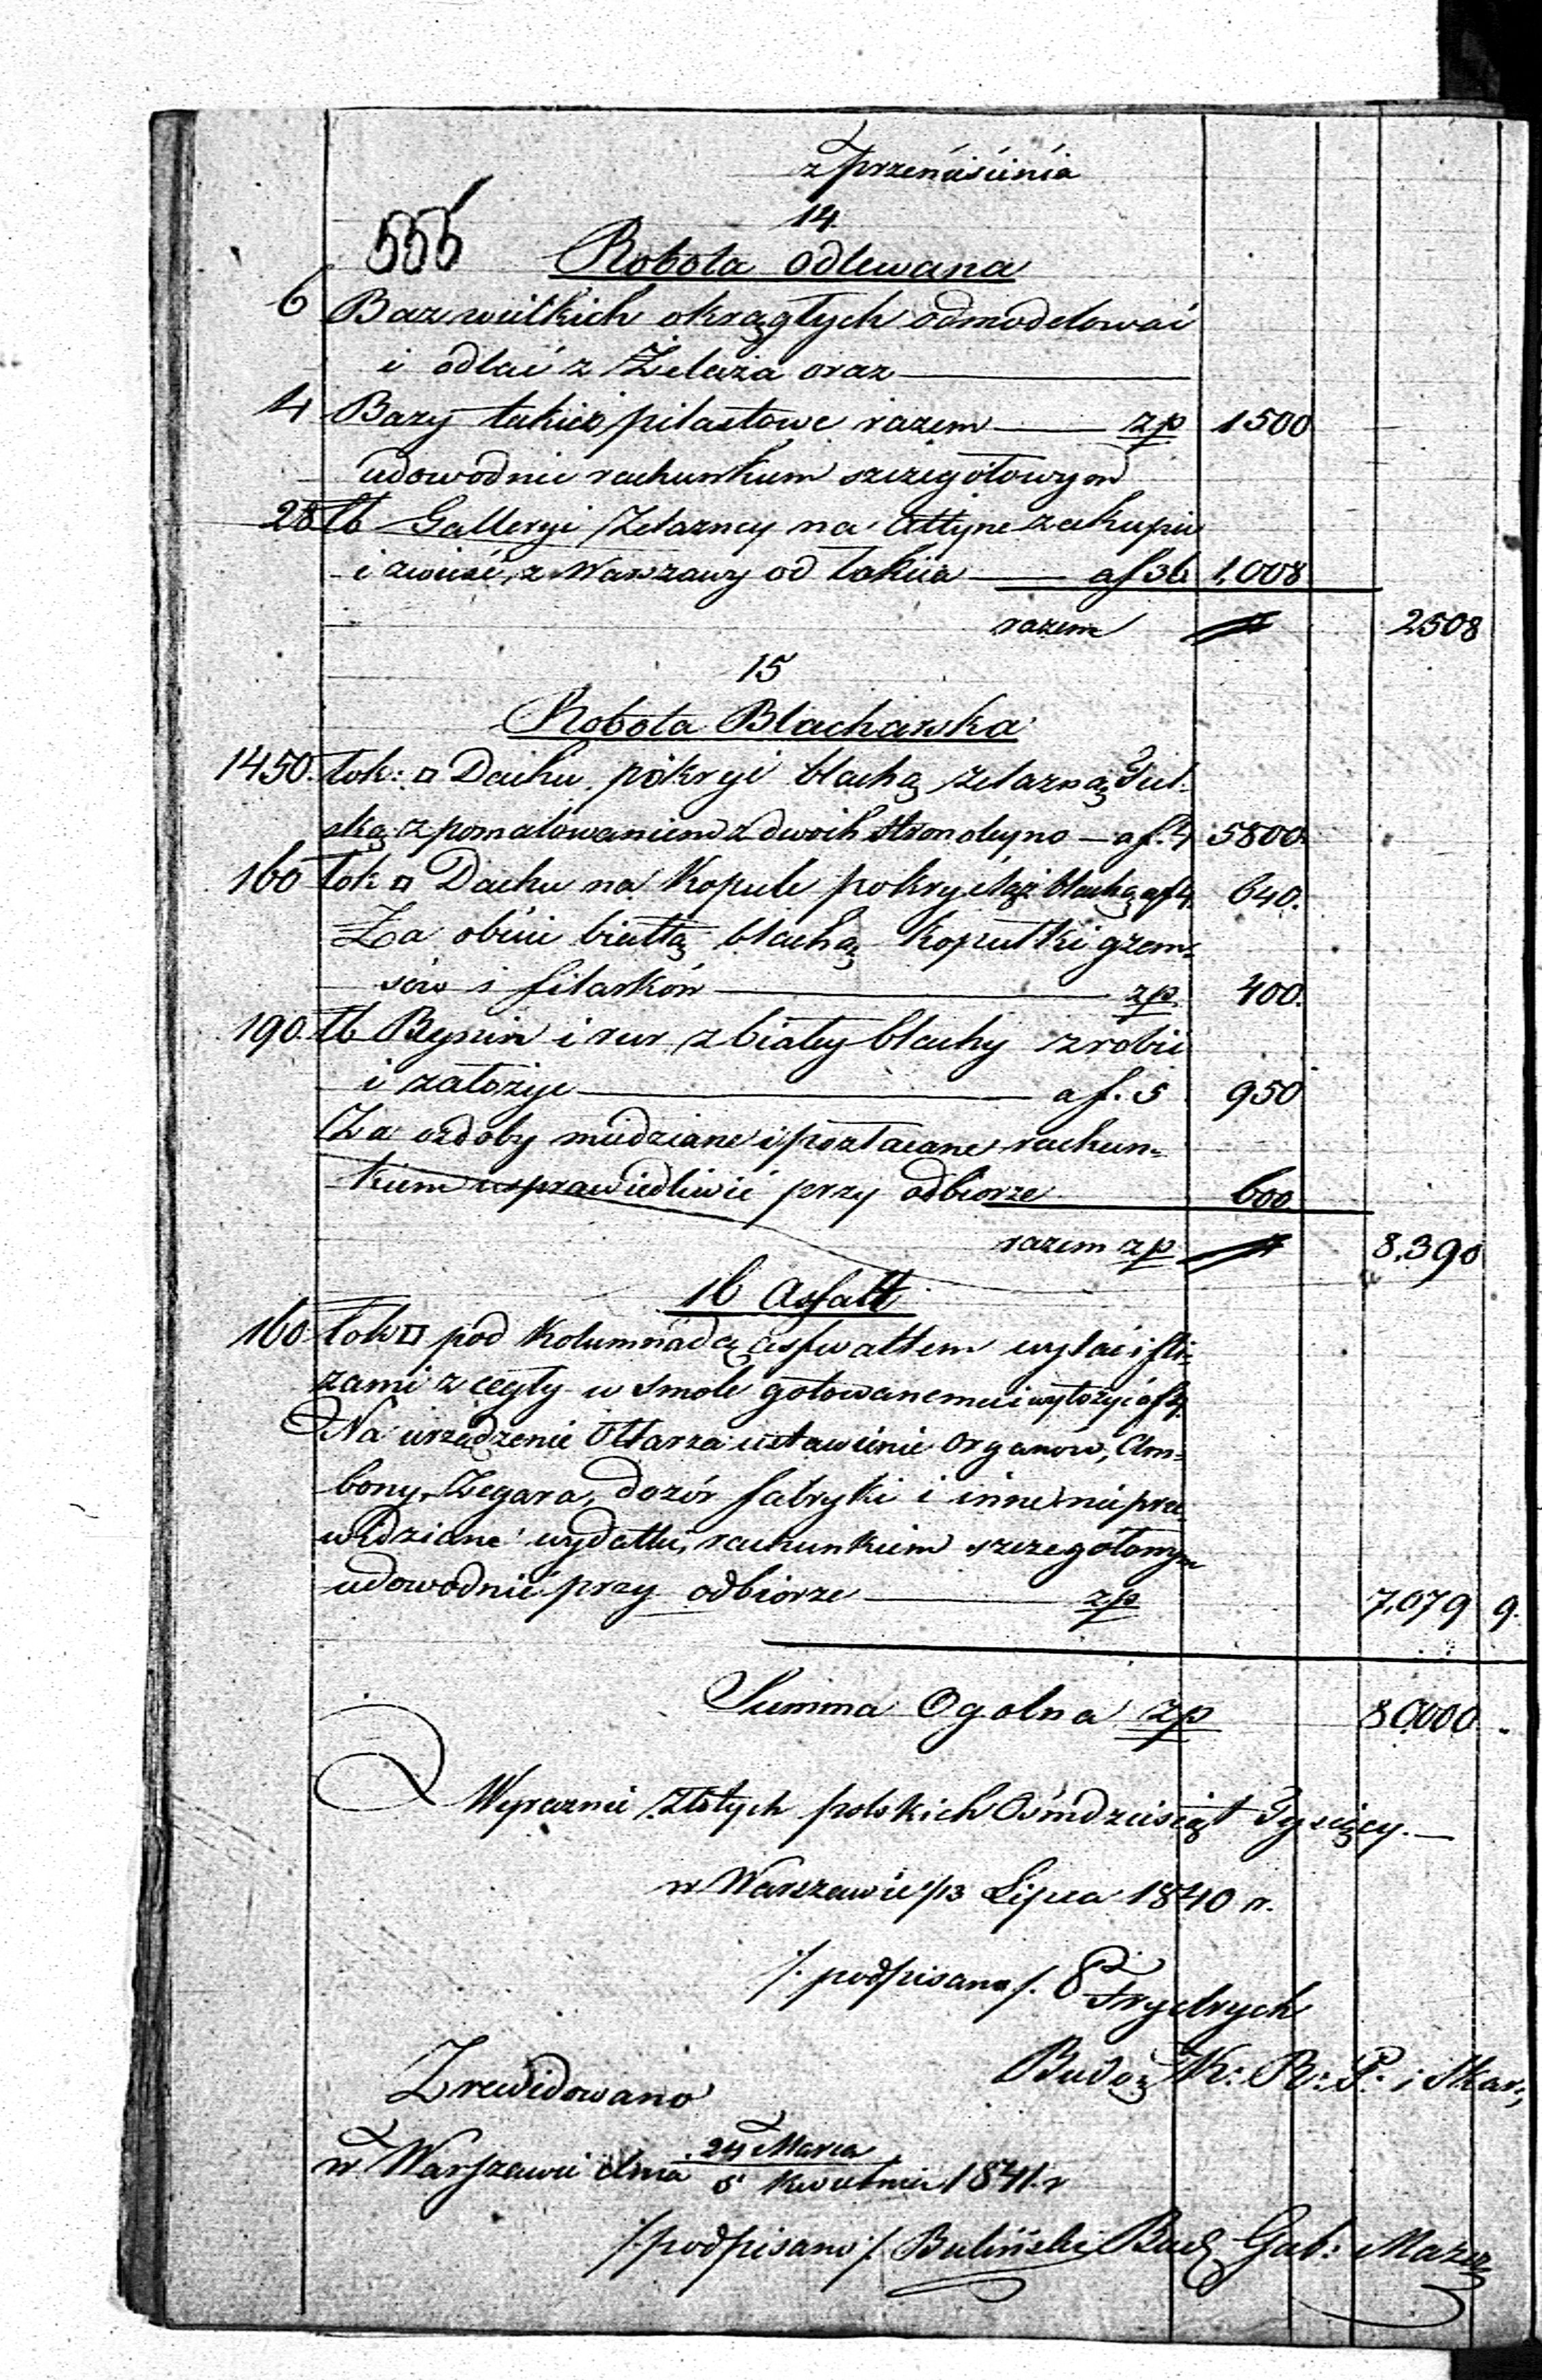 z przeniesienia
14
555 Robota odlewana
6 Baz wielkich okrągłych odmodelować
i odlać z Żelaza oraz
4 Bazy takież pilastowe razem — zp 1500
udowodnić rachunkiem szczegółowym
28 łb Galleryi Żelazney na Attyne zakupić
i zwieść z Warszawy od łokcia — af 36 1,008
razem 2508
15
Robota Blacharska
1450. łok: □ Dachu pokryć blachą żelazną Szl-
ską z pomalowaniem z dwoih stron oleyno — af. 4 5800.
160 łok □ Dachu na Kopule pokryć tąż blachą af 4 640.
Za obicie białłą blachą Kopułki gzem=
sów i filarków — zp. 400.
190. łb Rynien i rur z białey blachy zrobić
i założyć — af. 5 950
Za ozdoby miedziane i pozłacane rachun=
kiem usprawiedliwić przy odbiorze 600.
razem zp 8,390
16 Asfalt
160 łok □ pod Kolumnadą asfwaltem wylać i fli-
zami z cegły w smole gotowanemi wyłożyć af 4.
Na urządzenie Ołtarza ustawienie Organów, Am=
bony, Zegara, dozór fabryki i inne nieprze-
widziane wydatki, rachunkiem szczegółowym
udowodnić przy odbiorze — zp 7,079 9.
Summa Ogolna zp 80,000 .
Wyraznie Złotych polskich Ośmdziesiąt Tysięcy. —
w Warszawie 1/13 Lipca 1840 r.
/. podpisano /.
Frydrych
Budo: K: R: P: i Skar:
Zrewidowano
w Warszawie dnia 24 Marca
5 Kwietnia 1841 r
/. podpisano /. Buliński Bud Gub: Mazo